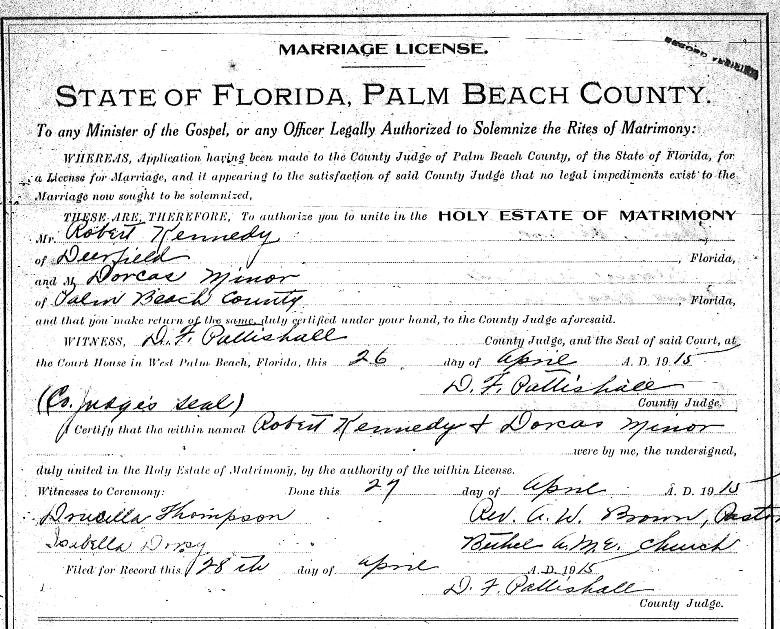 MARRIAGE LICENSE.
STATE OF FLORIDA, PALM BEACH COUNTY.
To any Minister of the Gospel, or any Officer Legally Authorized to Solemnize the Rites of Matrimony:
WHEREAS, Application having been made to the County Judge of Palm Beach County, of the State of Florida, for
a License for Marriage, and it appearing to the satisfaction of said County Judge that no legal impediments exist to the
Marriage now sought to be solemnized,
THESE ARE, THEREFORE, To authorize you to unite in the HOLY ESTATE OF MATRIMONY
Mr. Robert Kennedy
of Deerfield, Florida,
and M Dorcas Minor
of Palm Beach County, Florida,
and that you make return of the same, duly certified under your hand, to the County Judge aforesaid.
WITNESS, D. F. Pattishall County Judge, and the Seal of said Court, at
the Court House in West Palm Beach, Florida, this 26 day of April A. D. 1915
D. F. Pattishall
(Co. Judge's seal) County Judge.
I Certify that the within named Robert Kennedy & Dorcas Minor
were by me, the undersigned,
duly united in the Holy Estate of Matrimony, by the authority of the within License.
Witnesses to Ceremony: Done this 27 day of April A. D. 1915
Drucilla Thompson Rev. A. W. Brown, Pastor
Isabella Dorsy Bethel A.M.E. Church
Filed for Record this 28th day of April A. D. 1915
D. F. Pattishall
County Judge.